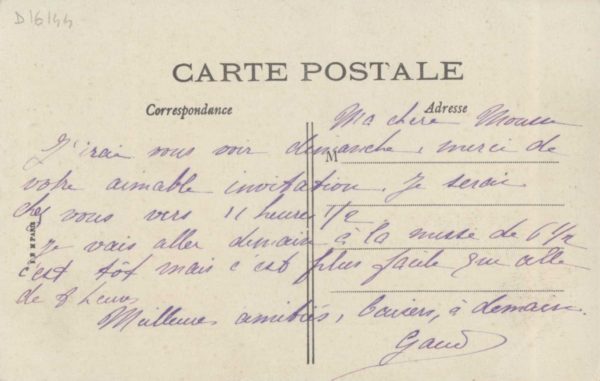 D16144
CARTE POSTALE
Correspondance
Adresse
M
Ma chère
J'irai vous voir dimanche, merci de
votre aimable invitation. Je serai
chez vous vers 11 heures 1/2
Je vais aller demain à la messe de 6 1/2
c'est tôt mais c'est plus facile que celle
de 8 heures
Meilleures amitiés, baisers, à demain.